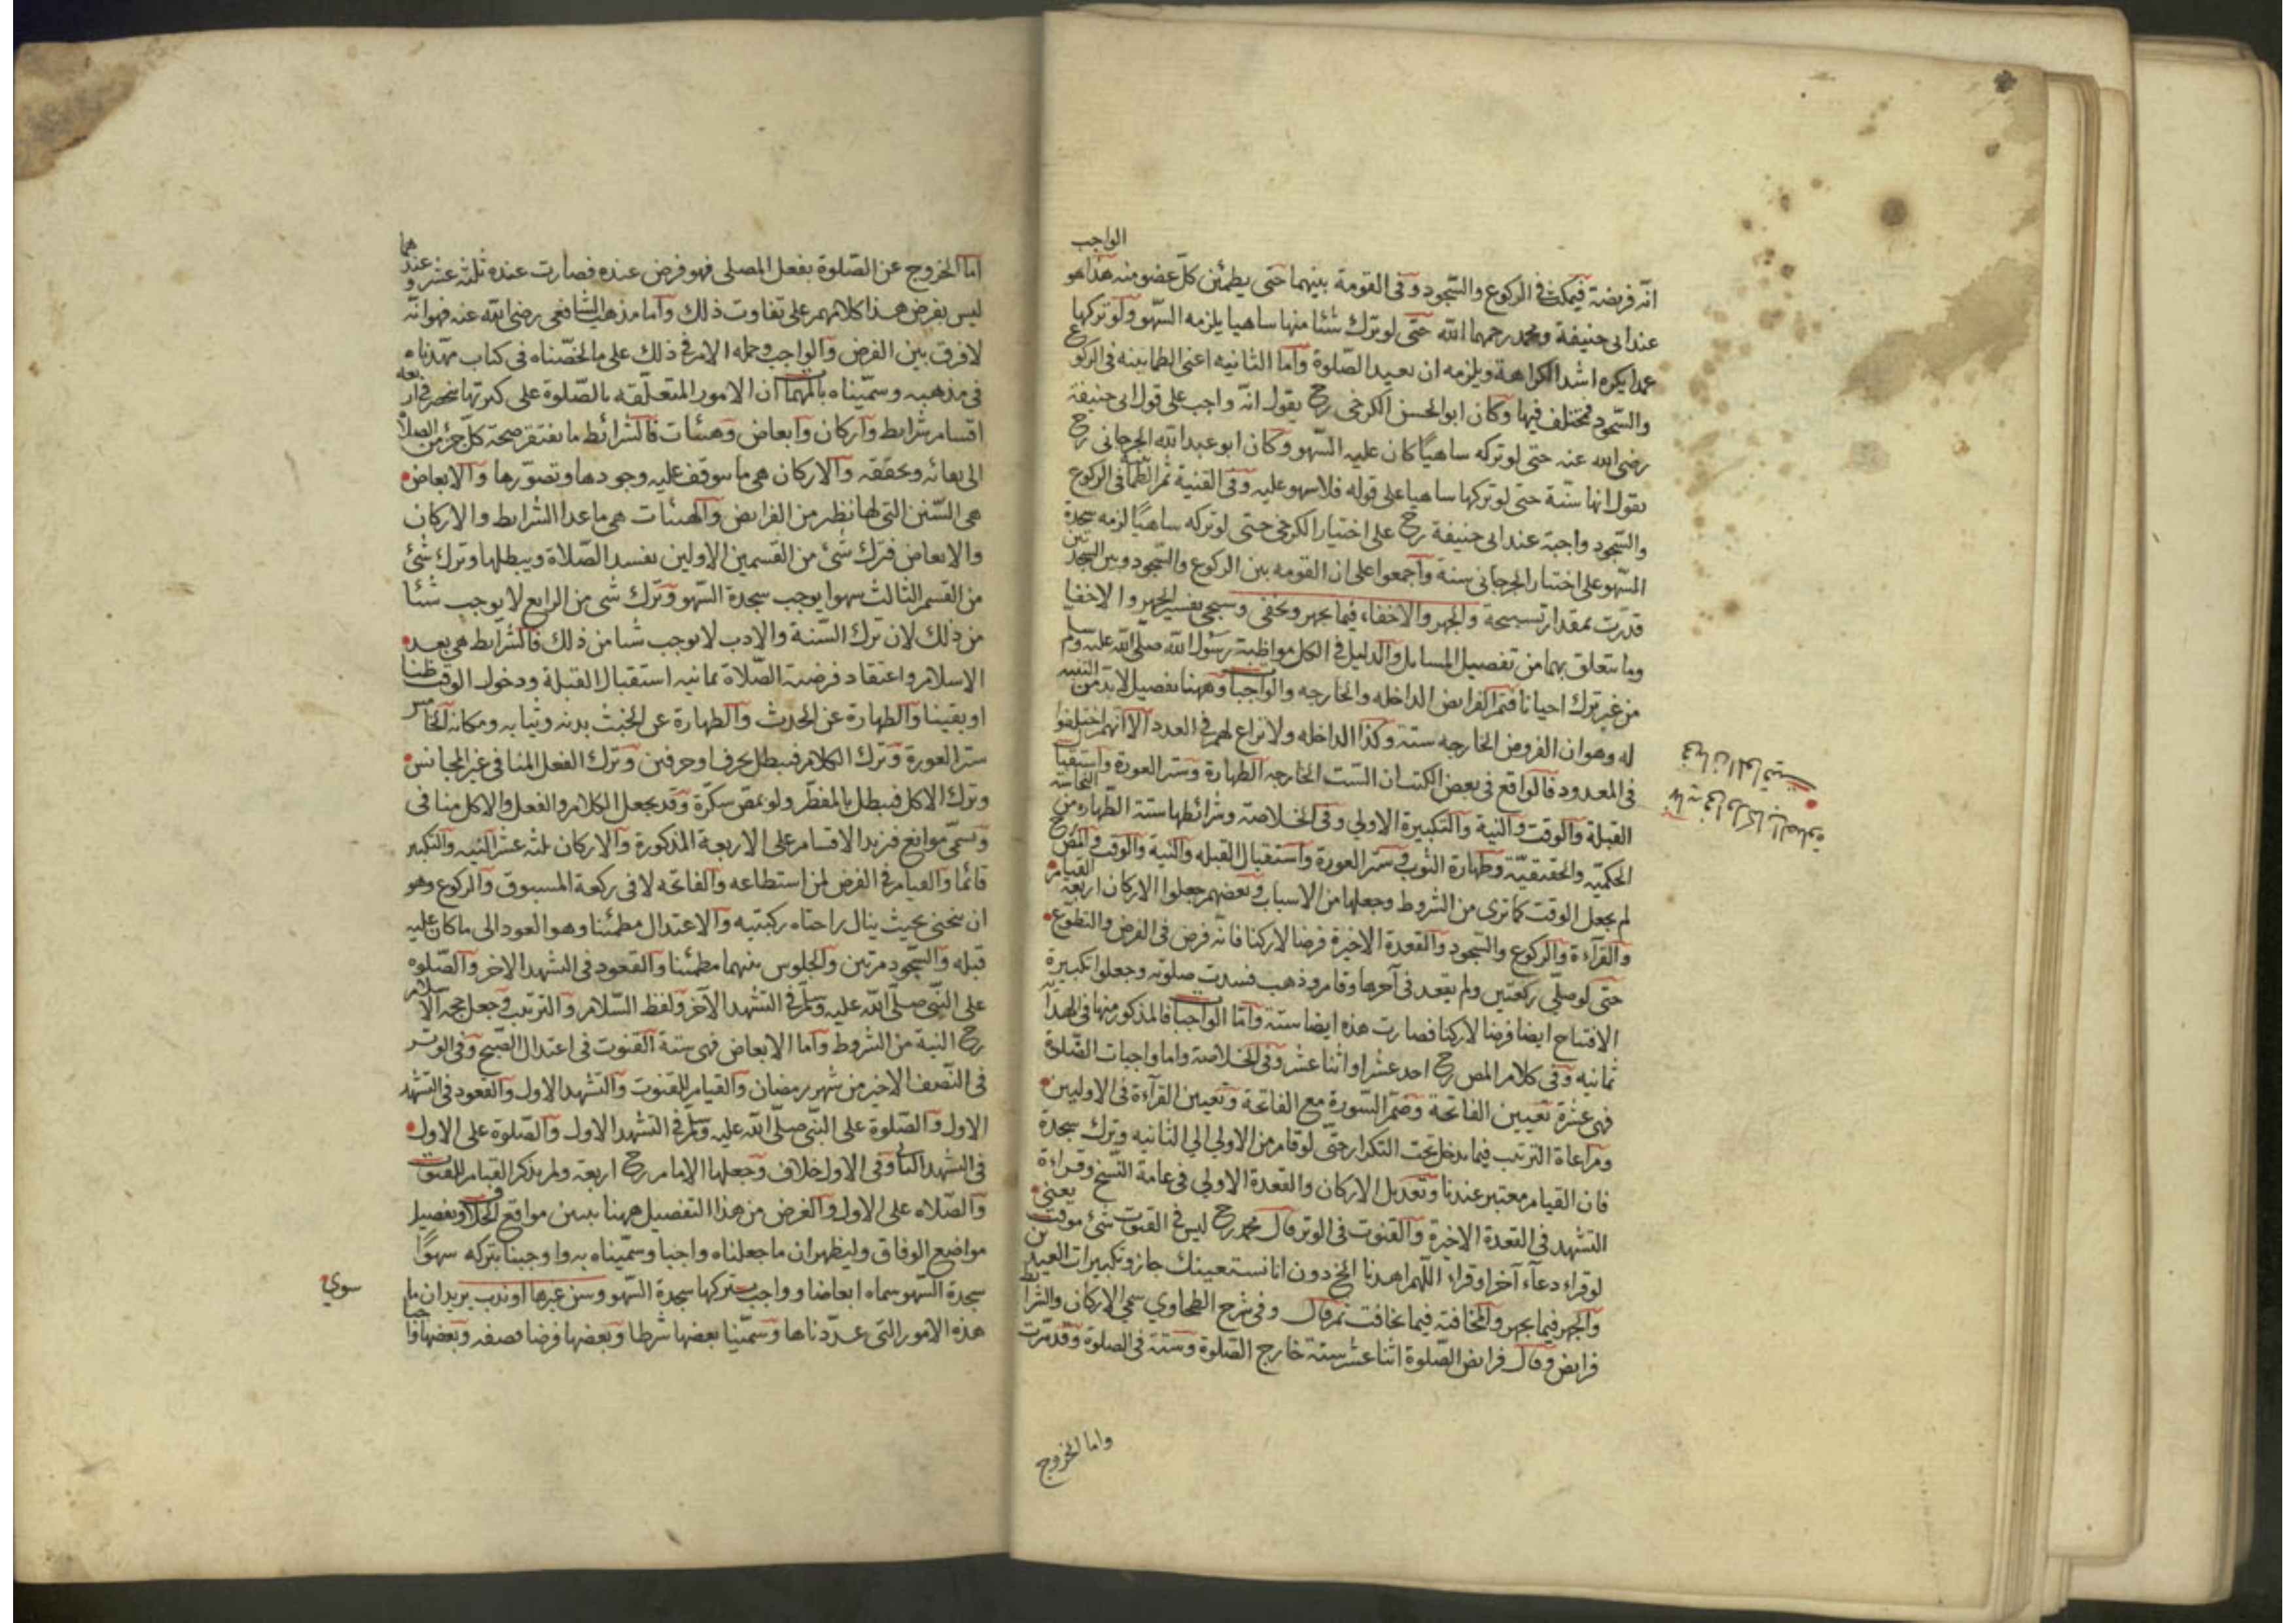 الواجب
انه فريضة فيمكث في الركوع والسجود وفى القومة بينهما حتى يطمئن كل عضو منه هذا هو
عند ابى حنيفة ومحمد رحمهما الله حتى لو ترك شئا منها ساهيا يلزمه السهو ولو تركها
عمدا يكره اشد الكراهة ويلزمه ان يعيد الصلوة واما الثانيه اعنى الطمانينه فى الركوع
والسجود فمختلف فيها وكان ابو الحسن الكرخى رح يقول انه واجب على قول ابى حنيفة
رضى الله عنه حتى لو تركه ساهيا كان عليه السهو وكان ابو عبد الله الجرجانى رح
يقول انها سنة حتى لو تركها ساهيا على قوله فلا سهو عليه وفى القنية ثم الطمانينة فى الركوع
والسجود واجبة عند ابى حنيفة رح على اختيار الكرخى حتى لو تركه ساهيا لزمه سجدة
السهو على اختيار الجرجانى سنة واجمعوا على ان القومه بين الركوع والسجود وبين السجدتين
قدرت بمقدار تسبيحة والجهر والاخفاء فيما يجهر ويخفى وسيجى تفسير الجهر والاخفا
وما يتعلق بهما من تفصيل المسايل والدليل فى الكل مواظبة رسول الله صلى الله عليه وسلم
من غير ترك احيانا فتم الفرايض الداخله والخارجه والواجبات وههنا تفصيل لابد من التنبيه
له وهو ان الفروض الخارجه ستة وكذا الداخله ولا نزاع لهم فى العدد الا انهم اختلفوا
فى المعدود فالواقع فى بعض الكتب ان الست الخارجه الطهارة وستر العورة واستقبال
القبلة والوقت والنية والتكبيرة الاولى وفى الخلاصة وشرائطها ستة الطهاره من النجاسة
الحكمية والحقيقية وطهارة الثوب وستر العورة واستقبال القبله والنية والوقت والمص رح
لم يجعل الوقت كما ترى من الشروط وجعلها من الاسباب وبعضهم جعلوا الاركان اربعة القيام
والقرآءة والركوع والسجود والقعدة الاخيرة فرضا لا ركنا فانه فرض فى الفرض والتطوع
حتى لو صلى ركعتين ولم يقعد فى آخرها وقام وذهب فسدت صلوته وجعلوا تكبيرة
الافتتاح ايضا فرضا لا ركنا فصارت هذه ايضا ستة واما الواجبات فالمذكور منها فى الهداية
ثمانيه وفى كلام المص رح احد عشر او اثنا عشر وفى الخلاصة واما واجبات الصلوة
فهى عشرة تعيين الفاتحة وضم السورة مع الفاتحة وتعيين القرآءة فى الاوليين
ومراعاة الترتيب فيما يدخل تحت التكرار حتى لو قام من الاولى الى الثانيه وترك سجدة
فان القيام معتبر عندنا وتعديل الاركان والقعدة الاولى فى عامة النسخ وقراءة
التشهد فى القعدة الاخيرة والقنوت فى الوتر قال محمد رح ليس فى القنوت شئ موقت يعنى
لو قراء دعآء آخر او قراء اللهم اهدنا الخ دون انا نستعينك جاز وتكبيرات العيدين
والجهر فيما يجهر والمخافتة فيما يخافت ثم قال وفى شرح الطحاوي سمى الاركان والشرايط
فرايض وقال فرايض الصلوة اثنا عشر ستة خارج الصلوة وستة فى الصلوة وقد مرت
واما الخروج
اما الخروج عن الصلوة بفعل المصلى فهو فرض عنده فصارت عنده ثلثة عشر وعندهما
ليس بفرض هذا كلامهم على تفاوت ذلك واما مذهب الشافعى رضى الله عنه فهو انه
لا فرق بين الفرض والواجب وجمله الامر فى ذلك على ما لخصناه فى كتاب مهدناه
فى مذهبه وسميناه بالمهمات ان الامور المتعلقه بالصلوة على كثرتها تنحصر فى اربعه
اقسام شرايط واركان وابعاض وهيئات فالشرائط ما يفتقر صحة كل جزء من الصلاة
الى بقائه وتحققه والاركان هى ما يتوقف عليه وجودها وتصورها والابعاض
هى السنن التى لها نظير من الفرايض والهيئات هى ما عدا الشرايط والاركان
والابعاض فترك شئ من القسمين الاولين يفسد الصلاة ويبطلها وترك شئ
من القسم الثالث سهوا يوجب سجدة السهو وترك شى من الرابع لا يوجب شئا
من ذلك لان ترك السنة والادب لا يوجب شئا من ذلك فالشرايط هى بعد
الاسلام واعتقاد فرضية الصلاة ثمانيه استقبال القبلة ودخول الوقت ظنا
او يقينا والطهارة عن الحدث والطهارة عن الخبث بدنه وثيابه ومكانه الخامس
ستر العورة وترك الكلام فيبطل بحرف او حرفين وترك الفعل المنافى غير المجانس
وترك الاكل فيبطل بالمفطر ولو بمص سكرة وقد يجعل الكلام والفعل والاكل منافى
وتسمى موانع فزيد الاقسام على الاربعة المذكورة والاركان ثلثة عشر النيه والتكبير
قائما والقيام فى الفرض لمن استطاعه والفاتحه لا فى ركعة المسبوق والركوع وهو
ان ينحنى بحيث ينال راحتاه ركبتيه والاعتدال مطمئنا وهو العود الى ما كان عليه
قبله والسجود مرتين والجلوس بينهما مطمئنا والقعود فى التشهد الاخر والصلوه
على النبى صلى الله عليه وسلم فى التشهد الآخر ولفظ السلام والترتيب وجعل حجة الاسلام
رح النية من الشروط واما الابعاض فهى ستة القنوت فى اعتدال الصبح وفى الوتر
فى النصف الاخير من شهر رمضان والقيام للقنوت والتشهد الاول والقعود فى التشهد
الاول والصلوة على النبى صلى الله عليه وسلم فى التشهد الاول والصلوة على الاول
فى التشهد الثانى وفى الاول خلاف وجعلها الامام رح اربعة ولم يذكر القيام للقنوت
والصلاه على الاول والغرض من هذا التفصيل ههنا تبيين مواقع الخلاف وتفصيل
مواضع الوفاق وليظهر ان ما جعلناه واجبا وسميناه به واوجبنا بتركه سهوا
سجدة السهو سماه ابعاضا وواجب بتركها سجدة السهو وسنن غيرها او ندب يريد ان ما سوى
هذه الامور التى عددناها وسمينا بعضها شرطا وبعضها فرضا وبعضها واجبا